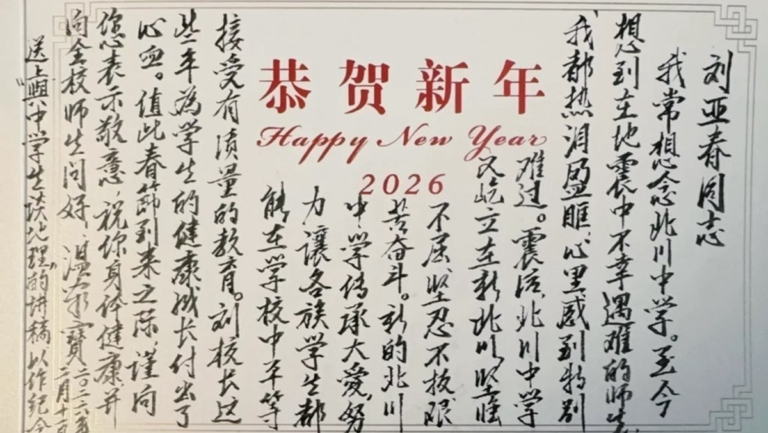 恭贺新年
Happy New Year
2026
刘亚春同志
我常想念北川中学。至今
想到在地震中不幸遇难的师生
我都热泪盈眶,心里感到特别
难过。震后,北川中学
又屹立在新北川,坚强
不屈,坚忍不拔,艰
苦奋斗。新的北川
中学传承大爱,努
力讓各族学生都
能在学校中平等
接受有质量的教育。刘校长这
些年為学生的健康成长付出了
心血。值此春節到来之际,谨向
您表示敬意,祝你身体健康并
向全校师生问好。温家寶
二〇二六年
二月十
送上與中学生谈地理的讲稿,以作纪念